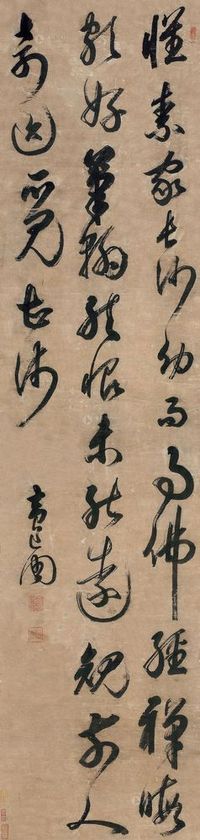 懷素家長沙幼而事佛經禪暇
頗好筆翰然恨未能遠覩前人
奇迹所見甚淺